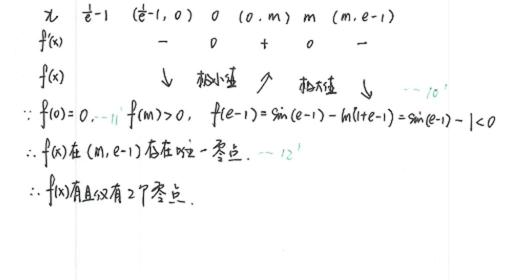 x 1/e-1 (1/e-1, 0) 0 (0, m) m (m, e-1)
f'(x) - 0 + 0 -
f(x) ↓ 极小值 ↗ 极大值 ↓ --10'
∵ f(0)=0, --11' f(m)>0, f(e-1)=sin(e-1)-ln(1+e-1)=sin(e-1)-1<0
∴ f(x)在(m, e-1)存在唯一零点. --12'
∴ f(x)有且仅有2个零点.